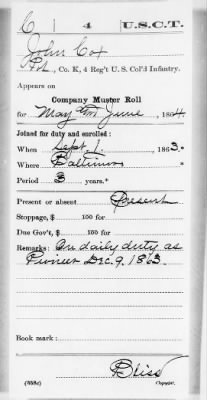 C 4 U.S.C.T.
John Cox
Pvt., Co. K, 4 Reg't U. S. Col'd Infantry.
Appears on
Company Muster Roll
for May and June, 1864.
Joined for duty and enrolled:
When Sept. 1, 1863.*
Where Baltimore *
Period 3 years.*
Present or absent Present
Stoppage, $ 100 for
Due Gov't, $ 100 for
Remarks: On daily duty as
Pioneer Dec. 9, 1863.
Book mark:
Bliss
(358c) Copyist.